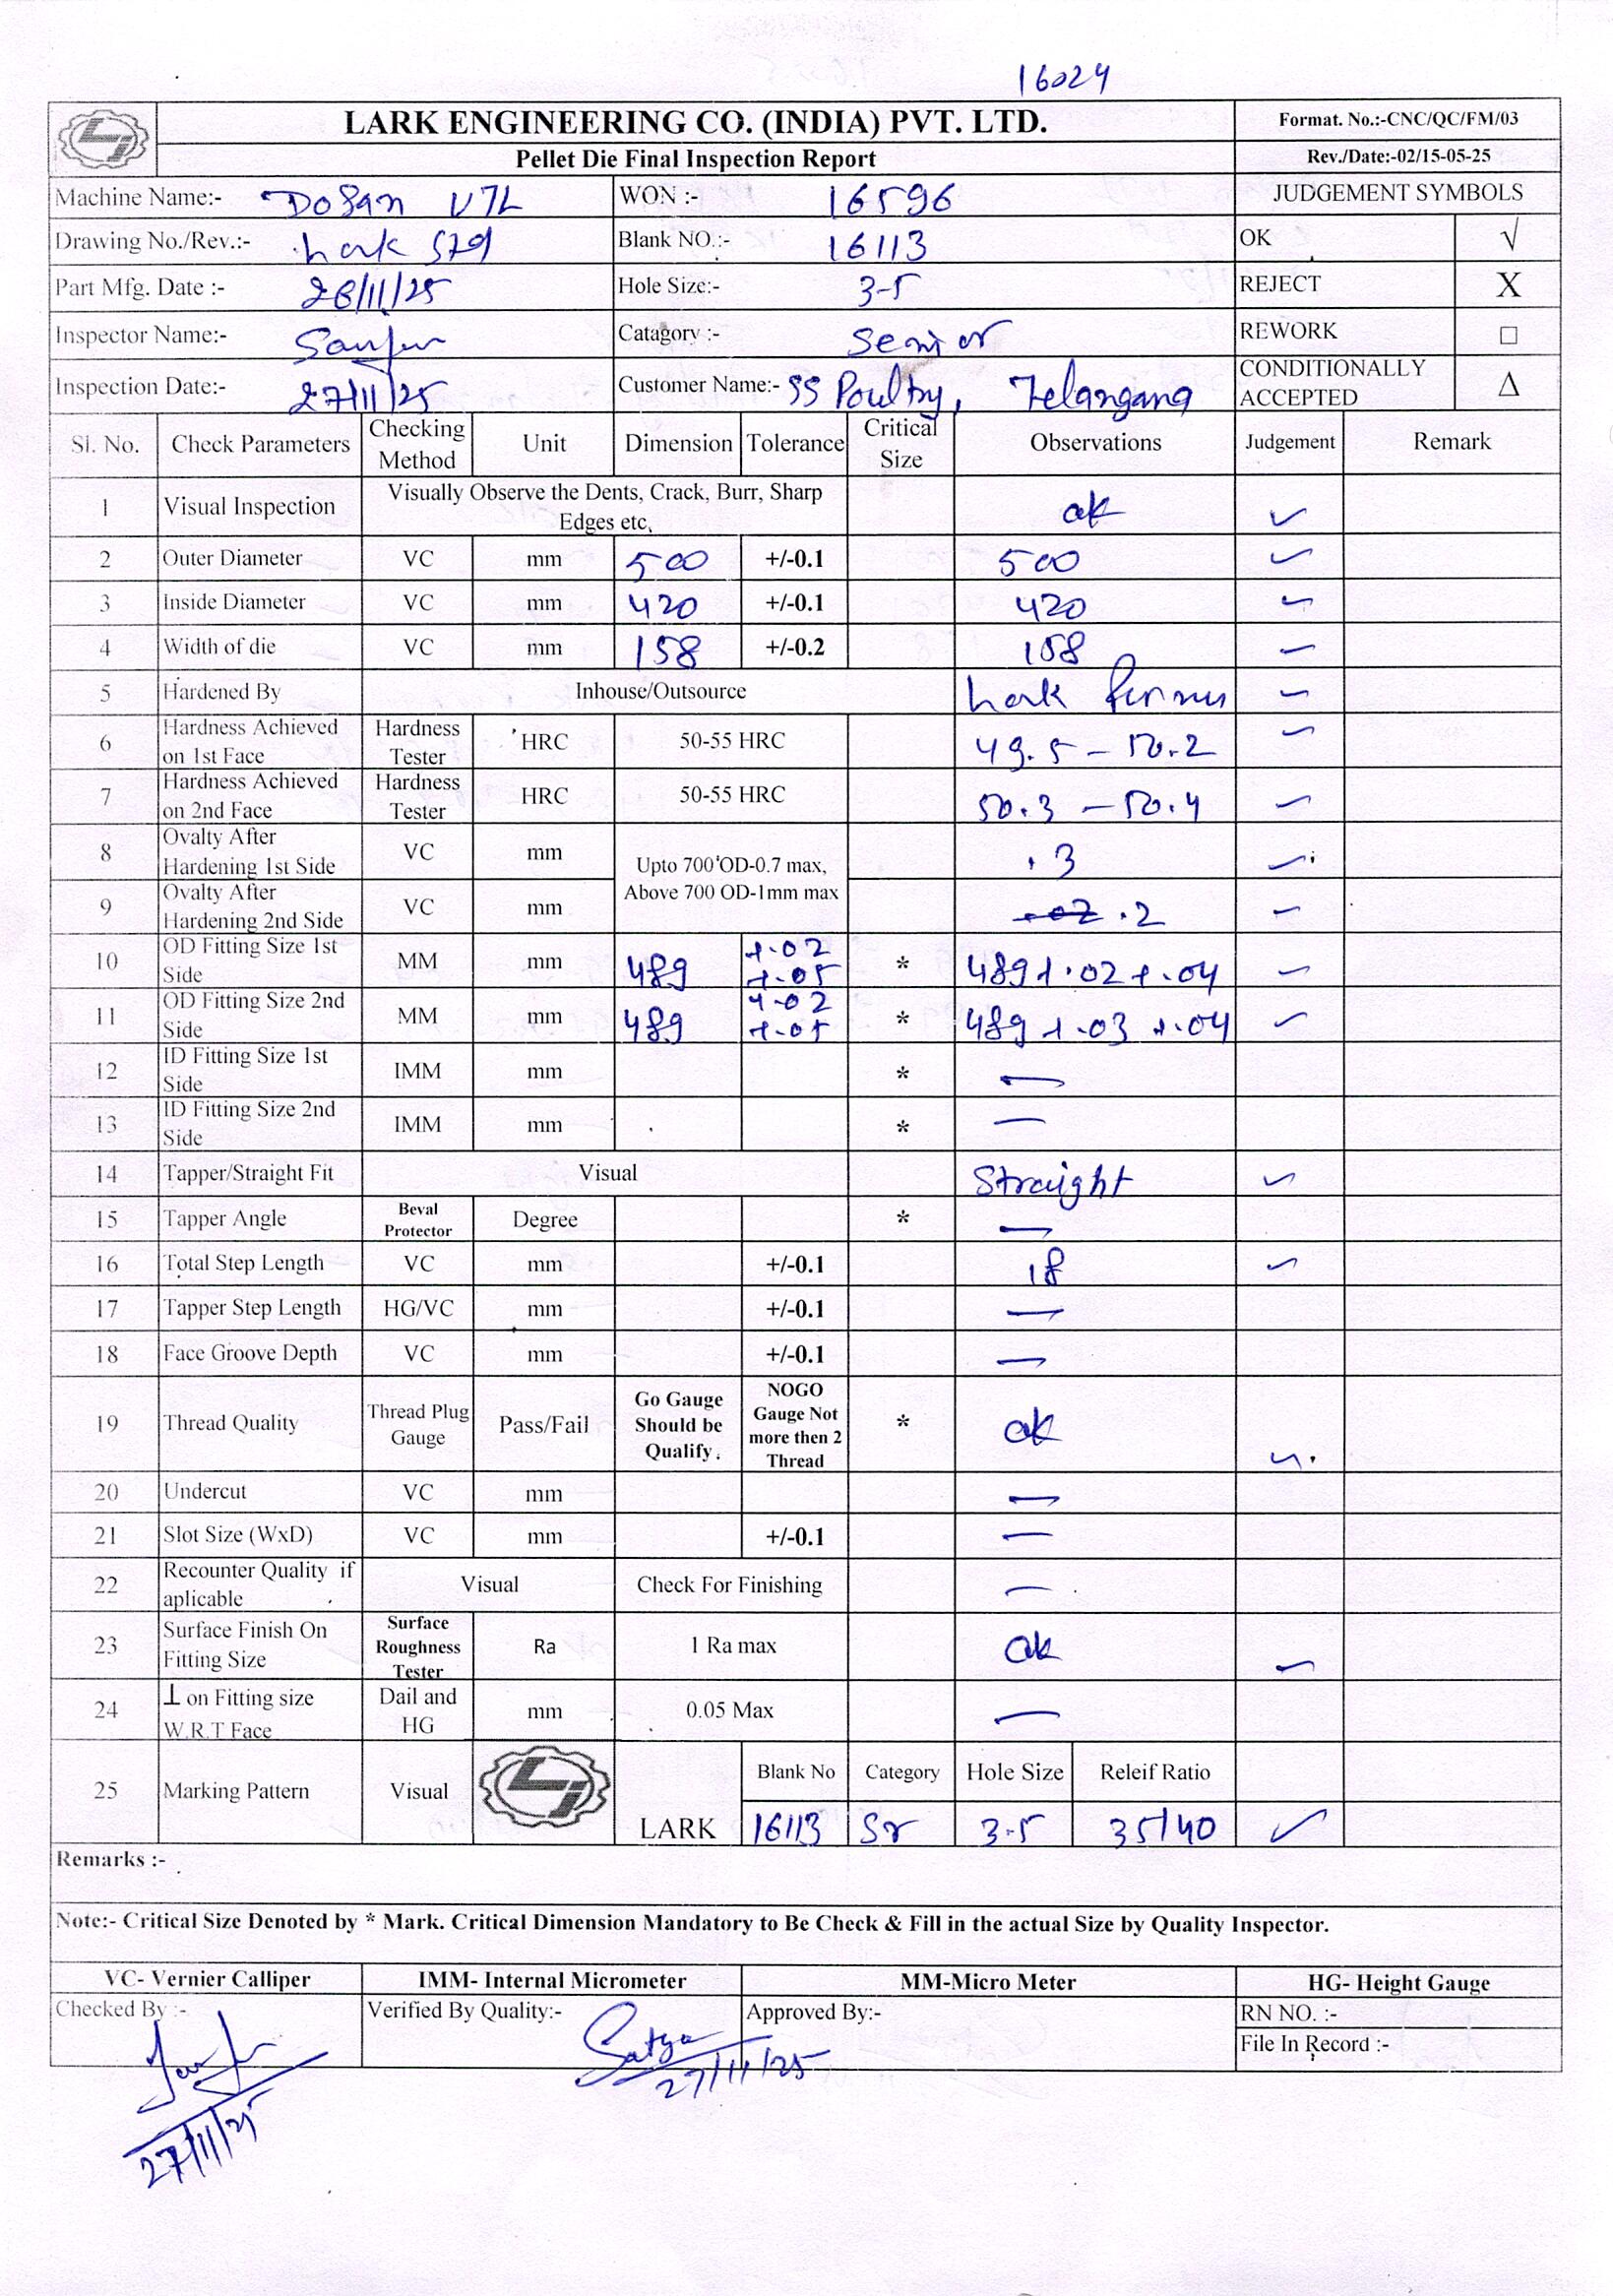 16024
LARK ENGINEERING CO. (INDIA) PVT. LTD. Format. No.:-CNC/QC/FM/03
Pellet Die Final Inspection Report Rev./Date:-02/15-05-25
Machine Name:- Dosan VTL WON :- 16596 JUDGEMENT SYMBOLS
Drawing No./Rev.:- Lark Blank NO.:- 16113 OK √
Part Mfg. Date :- 26/11/25 Hole Size:- 3.5 REJECT X
Inspector Name:- Catagory :- Senior REWORK □
Inspection Date:- 27/11/25 Customer Name:- SS Poultry, Telangana CONDITIONALLY ACCEPTED Δ
Sl. No. Check Parameters Checking Method Unit Dimension Tolerance Critical Size Observations Judgement Remark
1 Visual Inspection Visually Observe the Dents, Crack, Burr, Sharp Edges etc. ok ✓
2 Outer Diameter VC mm 500 +/-0.1 500 ✓
3 Inside Diameter VC mm 420 +/-0.1 420 ✓
4 Width of die VC mm 158 +/-0.2 158 ✓
5 Hardened By Inhouse/Outsource Lark ✓
6 Hardness Achieved on 1st Face Hardness Tester HRC 50-55 HRC 49.5 – 50.2 ✓
7 Hardness Achieved on 2nd Face Hardness Tester HRC 50-55 HRC 50.3 – 50.4 ✓
8 Ovalty After Hardening 1st Side VC mm Upto 700 OD-0.7 max, Above 700 OD-1mm max .3 ✓
9 Ovalty After Hardening 2nd Side VC mm .2 ✓
10 OD Fitting Size 1st Side MM mm 489 +.02 +.05 * 489 +.02 +.04 ✓
11 OD Fitting Size 2nd Side MM mm 489 +.02 +.05 * 489 +.03 +.04 ✓
12 ID Fitting Size 1st Side IMM mm * —
13 ID Fitting Size 2nd Side IMM mm * —
14 Tapper/Straight Fit Visual Straight ✓
15 Tapper Angle Beval Protector Degree * —
16 Total Step Length VC mm +/-0.1 18 ✓
17 Tapper Step Length HG/VC mm +/-0.1 —
18 Face Groove Depth VC mm +/-0.1 —
19 Thread Quality Thread Plug Gauge Pass/Fail Go Gauge Should be Qualify. NOGO Gauge Not more then 2 Thread * ok ✓
20 Undercut VC mm —
21 Slot Size (WxD) VC mm +/-0.1 —
22 Recounter Quality if aplicable Visual Check For Finishing —
23 Surface Finish On Fitting Size Surface Roughness Tester Ra 1 Ra max ok ✓
24 ⊥ on Fitting size W.R.T Face Dail and HG mm 0.05 Max —
25 Marking Pattern Visual LARK Blank No Category Hole Size Releif Ratio
16113 Sr 3.5 35/40 ✓
Remarks :-
Note:- Critical Size Denoted by * Mark. Critical Dimension Mandatory to Be Check & Fill in the actual Size by Quality Inspector.
VC- Vernier Calliper IMM- Internal Micrometer MM-Micro Meter HG- Height Gauge
Checked By :- Verified By Quality:- Satya Approved By:- RN NO. :-
27/11/25 File In Record :-
27/11/25